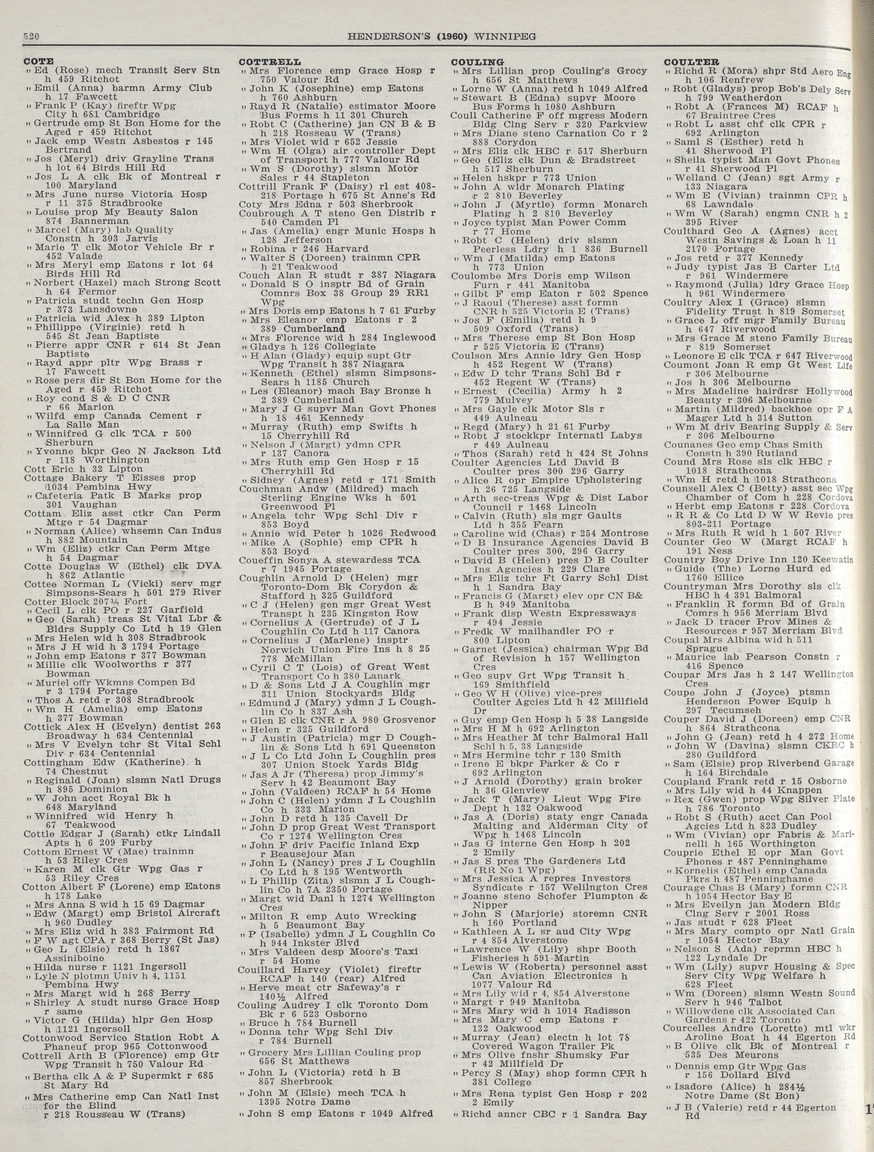 520
HENDERSON'S (1960) WINNIPEG
COTE
" Ed (Rose) mech Transit Serv Stn
h 459 Ritchot
" Emil (Anna) barmn Army Club
h 17 Fawcett
" Frank P (Kay) fireftr Wpg
City h 681 Cambridge
" Gertrude emp St Bon Home for the
Aged r 459 Ritchot
" Jack emp Westn Asbestos r 145
Bertrand
" Jos (Meryl) driv Grayline Trans
h lot 64 Birds Hill Rd
" Jos L A clk Bk of Montreal r
100 Maryland
" Mrs June nurse Victoria Hosp
r 11 375 Stradbrooke
" Louise prop My Beauty Salon
874 Bannerman
" Marcel (Mary) lab Quality
Constn h 303 Jarvis
" Marie T clk Motor Vehicle Br r
452 Valade
" Mrs Meryl emp Eatons r lot 64
Birds Hill Rd
" Norbert (Hazel) mach Strong Scott
h 64 Fermor
" Patricia studt techn Gen Hosp
r 373 Lansdowne
" Patricia wid Alex h 389 Lipton
" Phillippe (Virginie) retd h
545 St Jean Baptiste
" Pierre appr CNR r 614 St Jean
Baptiste
" Rayd appr pltr Wpg Brass r
17 Fawcett
" Rose pers dir St Bon Home for the
Aged r 459 Ritchot
" Roy cond S & D C CNR
r 66 Marion
" Wilfd emp Canada Cement r
La Salle Man
" Winnifred G clk TCA r 500
Sherburn
" Yvonne bkpr Geo N Jackson Ltd
r 118 Worthington
Cott Eric h 32 Lipton
Cottage Bakery T Eisses prop
1034 Pembina Hwy
" Cafeteria Patk B Marks prop
301 Vaughan
Cottam Eliz asst ctkr Can Perm
Mtge r 54 Dagmar
" Norman (Alice) whsemn Can Indus
h 882 Mountain
" Wm (Eliz) ctkr Can Perm Mtge
h 54 Dagmar
Cotte Douglas W (Ethel) clk DVA
h 862 Atlantic
Cottee Norman L (Vicki) serv mgr
Simpsons-Sears h 501 279 River
Cotter Block 207½ Fort
" Cecil L clk PO r 227 Garfield
" Geo (Sarah) treas St Vital Lbr &
Bldrs Supply Co Ltd h 19 Glen
" Mrs Helen wid h 308 Stradbrook
" Mrs J H wid h 3 1794 Portage
" John emp Eatons r 377 Bowman
" Millie clk Woolworths r 377
Bowman
" Muriel offr Wkmns Compen Bd
r 3 1794 Portage
" Thos A retd r 308 Stradbrook
" Wm H (Amelia) emp Eatons
h 377 Bowman
Cottick Alex H (Evelyn) dentist 263
Broadway h 634 Centennial
" Mrs V Evelyn tchr St Vital Schl
Div r 634 Centennial
Cottingham Edw (Katherine) h
74 Chestnut
" Reginald (Joan) slsmn Natl Drugs
h 895 Dominion
" W John acct Royal Bk h
648 Maryland
" Winnifred wid Henry h
67 Teakwood
Cottle Edgar J (Sarah) ctkr Lindall
Apts h 6 209 Furby
Cottom Ernest W (Mae) trainmn
h 53 Riley Cres
" Karen M clk Gtr Wpg Gas r
53 Riley Cres
Cotton Albert F (Lorene) emp Eatons
h 178 Lake
" Mrs Anna S wid h 15 69 Dagmar
" Edw (Margt) emp Bristol Aircraft
h 960 Dudley
" Mrs Eliz wid h 383 Fairmont Rd
" F W agt CPA r 368 Berry (St Jas)
" Geo L (Elsie) retd h 1867
Assiniboine
" Hilda nurse r 1121 Ingersoll
" Lyle N plotmn Univ h 4, 1151
Pembina Hwy
" Mrs Margt wid h 268 Berry
" Shirley A studt nurse Grace Hosp
r same
" Victor G (Hilda) hlpr Gen Hosp
h 1121 Ingersoll
Cottonwood Service Station Robt A
Phaneuf prop 965 Cottonwood
Cottrell Arth B (Florence) emp Gtr
Wpg Transit h 750 Valour Rd
" Bertha clk A & P Supermkt r 685
St Mary Rd
" Mrs Catherine emp Can Natl Inst
for the Blind
r 218 Rousseau W (Trans)
COTTRELL
" Mrs Florence emp Grace Hosp r
750 Valour Rd
" John K (Josephine) emp Eatons
h 760 Ashburn
" Rayd R (Natalie) estimator Moore
Bus Forms h 11 301 Church
" Robt C (Catherine) jan CN B & B
h 218 Rosseau W (Trans)
" Mrs Violet wid r 652 Jessie
" Wm H (Olga) air controller Dept
of Transport h 777 Valour Rd
" Wm S (Dorothy) slsmn Motor
Sales r 44 Stapleton
Cottrill Frank F (Daisy) rl est 408-
218 Portage h 675 St Anne's Rd
Coty Mrs Edna r 503 Sherbrook
Coubrough A T steno Gen Distrib r
540 Camden Pl
" Jas (Amelia) engr Munic Hosps h
128 Jefferson
" Robina r 246 Harvard
" Walter S (Doreen) trainmn CPR
h 21 Teakwood
Couch Alan R studt r 387 Niagara
" Donald S O insptr Bd of Grain
Comnrs Box 38 Group 29 RR1
Wpg
" Mrs Doris emp Eatons h 7 61 Furby
" Mrs Eleanor emp Eatons r 2
389 Cumberland
" Mrs Florence wid h 284 Inglewood
" Gladys h 126 Collegiate
" H Alan (Glady) equip supt Gtr
Wpg Transit h 387 Niagara
" Kenneth (Ethel) slsmn Simpsons-
Sears h 1185 Church
" Les (Eleanor) mach Bay Bronze h
2 389 Cumberland
" Mary J G supvr Man Govt Phones
h 18 461 Kennedy
" Murray (Ruth) emp Swifts h
15 Cherryhill Rd
" Nelson J (Margt) ydmn CPR
r 137 Canora
" Mrs Ruth emp Gen Hosp r 15
Cherryhill Rd
" Sidney (Agnes) retd r 171 Smith
Couchman Andw (Mildred) mach
Sterling Engine Wks h 501
Greenwood Pl
" Angela tchr Wpg Schl Div r
853 Boyd
" Annie wid Peter h 1026 Redwood
" Mike A (Sophie) emp CPR h
853 Boyd
Coueffin Sonya A stewardess TCA
r 7 1945 Portage
Coughlin Arnold D (Helen) mgr
Toronto-Dom Bk Corydon &
Stafford h 325 Guildford
" C J (Helen) gen mgr Great West
Transpt h 235 Kingston Row
" Cornelius A (Gertrude) of J L
Coughlin Co Ltd h 117 Canora
" Cornelius J (Marlene) insptr
Norwich Union Fire Ins h 8 25
778 McMillan
" Cyril C T (Lois) of Great West
Transport Co h 380 Lanark
" D & Sons Ltd J A Coughlin mgr
311 Union Stockyards Bldg
" Edmund J (Mary) ydmn J L Cough-
lin Co h 837 Ash
" Glen E clk CNR r A 980 Grosvenor
" Helen r 325 Guildford
" J Austin (Patricia) mgr D Cough-
lin & Sons Ltd h 691 Queenston
" J L Co Ltd John L Coughlin pres
307 Union Stock Yards Bldg
" Jas A Jr (Theresa) prop Jimmy's
Serv h 42 Beaumont Bay
" John (Valdeen) RCAF h 54 Home
" John C (Helen) ydmn J L Coughlin
Co h 333 Marion
" John D retd h 135 Cavell Dr
" John D prop Great West Transport
Co r 1274 Wellington Cres
" John F driv Pacific Inland Exp
r Beausejour Man
" John L (Nancy) pres J L Coughlin
Co Ltd h 8 195 Wentworth
" L Phillip (Zita) slsmn J L Cough-
lin Co h 7A 2350 Portage
" Margt wid Danl h 1274 Wellington
Cres
" Milton R emp Auto Wrecking
h 5 Beaumont Bay
" P (Isabelle) ydmn J L Coughlin Co
h 944 Inkster Blvd
" Mrs Valdeen desp Moore's Taxi
r 54 Home
Couillard Harvey (Violet) fireftr
RCAF h 140 (rear) Alfred
" Herve meat ctr Safeway's r
140½ Alfred
Couling Audrey I clk Toronto Dom
Bk r 6 523 Osborne
" Bruce h 784 Burnell
" Donna tchr Wpg Schl Div
r 784 Burnell
" Grocery Mrs Lillian Couling prop
656 St Matthews
" John L (Victoria) retd h B
857 Sherbrook
" John M (Elsie) mech TCA h
1395 Notre Dame
" John S emp Eatons r 1049 Alfred
COULING
" Mrs Lillian prop Couling's Grocy
h 656 St Matthews
" Lorne W (Anna) retd h 1049 Alfred
" Stewart B (Edna) supvr Moore
Bus Forms h 1080 Ashburn
Coull Catherine P off mgress Modern
Bldg Clng Serv r 320 Parkview
" Mrs Diane steno Carnation Co r 2
888 Corydon
" Mrs Eliz clk HBC r 517 Sherburn
" Geo (Eliz clk Dun & Bradstreet
h 517 Sherburn
" Helen hskpr r 773 Union
" John A wldr Monarch Plating
r 2 810 Beverley
" John J (Myrtle) formn Monarch
Plating h 2 810 Beverley
" Joyce typist Man Power Comm
r 77 Home
" Robt C (Helen) driv slsmn
Peerless Ldry h 1 836 Burnell
" Wm J (Matilda) emp Eatons
h 773 Union
Coulombe Mrs Doris emp Wilson
Furn r 441 Manitoba
" Gilbt F emp Eaton r 502 Spence
" J Raoul (Therese) asst formn
CNR h 525 Victoria E (Trans)
" Jos F (Emilia) retd h 9
509 Oxford (Trans)
" Mrs Therese emp St Bon Hosp
r 525 Victoria E (Trans)
Coulson Mrs Annie ldry Gen Hosp
h 452 Regent W (Trans)
" Edw D tchr Trans Schl Bd r
452 Regent W (Trans)
" Ernest (Cecilia) Army h 2
779 Mulvey
" Mrs Gayle clk Motor Sls r
449 Aulneau
" Regd (Mary) h 21 61 Furby
" Robt J stockkpr Internatl Labys
r 449 Aulneau
" Thos (Sarah) retd h 424 St Johns
Coulter Agencies Ltd David B
Coulter pres 300 296 Garry
" Alice R opr Empire Upholstering
h 26 725 Langside
" Arth sec-treas Wpg & Dist Labor
Council r 1468 Lincoln
" Calvin (Ruth) sls mgr Gaults
Ltd h 355 Fearn
" Caroline wid (Chas) r 254 Montrose
" D B Insurance Agencies David B
Coulter pres 300, 296 Garry
" David B (Helen) pres D B Coulter
Ins Agencies h 229 Clare
" Mrs Eliz tchr Ft Garry Schl Dist
h 1 Sandra Bay
" Francis G (Margt) elev opr CN B&
B h 949 Manitoba
" Frank disp Westn Expressways
r 494 Jessie
" Fredk W mailhandler PO r
800 Lipton
" Garnet (Jessica) chairman Wpg Bd
of Revision h 157 Wellington
Cres
" Geo supv Grt Wpg Transit h
169 Smithfield
" Geo W H (Olive) vice-pres
Coulter Agcies Ltd h 42 Millfield
Dr
" Guy emp Gen Hosp h 5 38 Langside
" Mrs H M h 692 Arlington
" Mrs Heather M tchr Balmoral Hall
Schl h 5, 38 Langside
" Mrs Hermine tchr r 130 Smith
" Irene E bkpr Parker & Co r
692 Arlington
" J Arnold (Dorothy) grain broker
h 36 Glenview
" Jack T (Mary) Lieut Wpg Fire
Dept h 132 Oakwood
" Jas A (Doris) staty engr Canada
Malting and Alderman City of
Wpg h 1468 Lincoln
" Jas G interne Gen Hosp h 202
2 Emily
" Jas S pres The Gardeners Ltd
(RR No 1 Wpg)
" Mrs Jessica A repres Investors
Syndicate r 157 Welilngton Cres
" Joanne steno Schofer Plumpton &
Nipper
" John S (Marjorie) storemn CNR
h 160 Portland
" Kathleen A L sr aud City Wpg
r 4 854 Alverstone
" Lawrence W (Lily) shpr Booth
Fisheries h 591 Martin
" Lewis W (Roberta) personnel asst
Can Aviation Electronics h
1077 Valour Rd
" Mrs Lily wid r 4, 854 Alverstone
" Margt r 949 Manitoba
" Mrs Mary wid h 1014 Radisson
" Mrs Mary C emp Eatons r
132 Oakwood
" Murray (Jean) electn h lot 78
Covered Wagon Trailer Pk
" Mrs Olive fnshr Shumsky Fur
r 42 Millfield Dr
" Percy S (May) shop formn CPR h
381 College
" Mrs Rena typist Gen Hosp r 202
2 Emily
" Richd anncr CBC r 1 Sandra Bay
COULTER
" Richd R (Mora) shpr Std Aero Eng
h 106 Renfrew
" Robt (Gladys) prop Bob's Dely Serv
h 799 Weatherdon
" Robt A (Frances M) RCAF h
67 Braintree Cres
" Robt L asst chf clk CPR r
692 Arlington
" Saml S (Esther) retd h
41 Sherwood Pl
" Sheila typist Man Govt Phones
r 41 Sherwood Pl
" Welland C (Jean) sgt Army r
133 Niagara
" Wm E (Vivian) trainmn CPR h
68 Lawndale
" Wm W (Sarah) engmn CNR h 2
395 River
Coulthard Geo A (Agnes) acct
Westn Savings & Loan h 11
2170 Portage
" Jos retd r 377 Kennedy
" Judy typist Jas B Carter Ltd
r 961 Windermere
" Raymond (Julia) ldry Grace Hosp
h 961 Windermere
Coultry Alex I (Grace) slsmn
Fidelity Trust h 819 Somerset
" Grace L off mgr Family Bureau
h 647 Riverwood
" Mrs Grace M steno Family Bureau
r 819 Somerset
" Leonore E clk TCA r 647 Riverwood
Coumont Joan R emp Gt West Life
r 306 Melbourne
" Jos h 306 Melbourne
" Mrs Madeline hairdrsr Hollywood
Beauty r 306 Melbourne
" Martin (Mildred) backhoe opr F A
Mager Ltd h 314 Sutton
" Wm M driv Bearing Supply & Serv
r 306 Melbourne
Counanes Geo emp Chas Smith
Constn h 390 Rutland
Cound Mrs Rose sls clk HBC r
1018 Strathcona
" Wm H retd h 1018 Strathcona
Counsell Alex C (Betty) asst sec Wpg
Chamber of Com h 228 Cordova
" Herbt emp Eatons r 228 Cordova
" R R & Co Ltd D W W Revie pres
803-211 Portage
" Mrs Ruth R wid h 1 507 River
Counter Geo W (Margt RCAF h
191 Ness
Country Boy Drive Inn 120 Keewatin
" Guide (The) Lorne Hurd ed
1760 Ellice
Countryman Mrs Dorothy sls clk
HBC h 4 391 Balmoral
" Franklin R formn Bd of Grain
Comrs h 956 Merriam Blvd
" Jack D tracer Prov Mines &
Resources r 957 Merriam Blvd
Coupal Mrs Albina wid h 511
Sprague
" Maurice lab Pearson Constn r
416 Spence
Coupar Mrs Jas h 2 147 Wellington
Cres
Coupe John J (Joyce) ptsmn
Henderson Power Equip h
297 Tecumseh
Couper David J (Doreen) emp CNR
h 864 Strathcona
" John G (Jean) retd h 4 272 Home
" John W (Davina) slsmn CKRC h
280 Guildford
" Sam (Elsie) prop Riverbend Garage
h 164 Birchdale
Coupland Frank retd r 15 Osborne
" Mrs Lily wid h 44 Knappen
" Rex (Gwen) prop Wpg Silver Plate
h 786 Toronto
" Robt S (Ruth) acct Can Pool
Agcies Ltd h 823 Dudley
" Wm (Vivian) opr Fabris & Mari-
nelli h 165 Worthington
Couprie Ethel E opr Man Govt
Phones r 487 Penninghame
" Kornelis (Ethel) emp Canada
Pkrs h 487 Penninghame
Courage Chas B (Mary) formn CNR
h 1054 Hector Bay E
" Mrs Evellyn jan Modern Bldg
Clng Serv r 2001 Ross
" Jas studt r 628 Fleet
" Mrs Mary compto opr Natl Grain
r 1054 Hector Bay
" Nelson S (Ada) reprmn HBC h
122 Lyndale Dr
" Wm (Lily) supvr Housing & Spec
Serv City Wpg Welfare h
628 Fleet
" Wm (Doreen) slsmn Westn Sound
Serv h 946 Talbot
" Willowdene clk Associated Can
Gardens r 422 Toronto
Courcelles Andre (Lorette) mtl wkr
Aroline Boat h 44 Egerton Rd
" B Olive clk Bk of Montreal r
535 Des Meurons
" Dennis emp Gtr Wpg Gas
r 156 Dollard Blvd
" Isadore (Alice) h 284½
Notre Dame (St Bon)
" J B (Valerie) retd r 44 Egerton
Rd